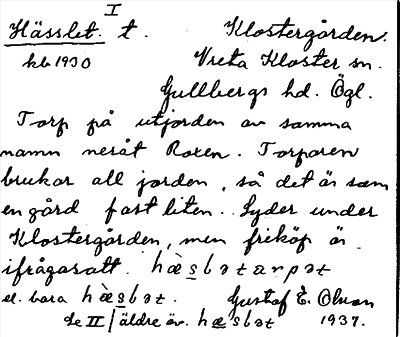 I
Hässlet. t. Klostergården.
kb 1930 Vreta Kloster sn.
Gullbergs hd. Ögl.
Torp på utjorden av samma
namn neråt Roxen. Torparen
brukar all jorden, så det är som
en gård fast liten. Lyder under
Klostergården, men friköp är
ifrågasatt. hæ̀sbətarpət
el. bara hæ̀sbət. Gustaf E. Olsson
Se II / äldre än. hæsbət 1937.